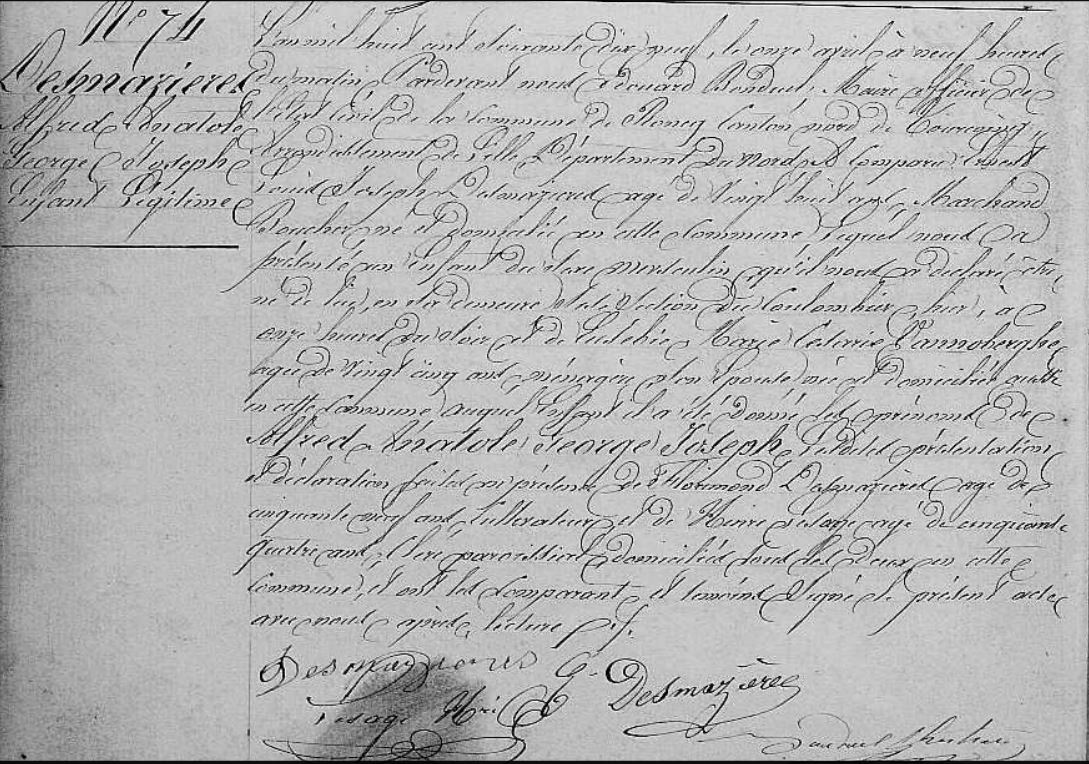 N° 74
Desmazieres
Alfred Anatole
George Joseph
Enfant Légitime
L'an mil huit cent soixante dix neuf, le onze avril à neuf heures
du matin Pardevant nous Edouard Maire officier de
l'état civil de la commune de Roncq canton nord de Tourcoing,
arrondissement de Lille Département du nord a comparu Ernest
Louis Joseph Desmazieres agé de vingt huit ans, Marchand
Boucher né et domicilié en cette commune lequel nous a
présenté un enfant du sexe masculin, qu'il nous a déclaré être
né de lui, en sa demeure sise section du Coulombier, hier, à
onze heures du soir et de Marie Vannoberghe
agée de vingt cinq ans ménagère son épouse née et domiciliée
en cette commune auquel enfant il a été donné les prénoms de
Alfred Anatole George Joseph lesdites présentation
et déclaration faites en présence de Florimond Desmazieres agé de
cinquante neuf ans cultivateur et de Henri Lesage agé de cinquante
quatre ans, Clerc paroissial domiciliés tous les deux en cette
commune, et ont les comparant et témoins signé le présent acte
avec nous après lecture
Desmazieres
Desmazières
Lesage Hri